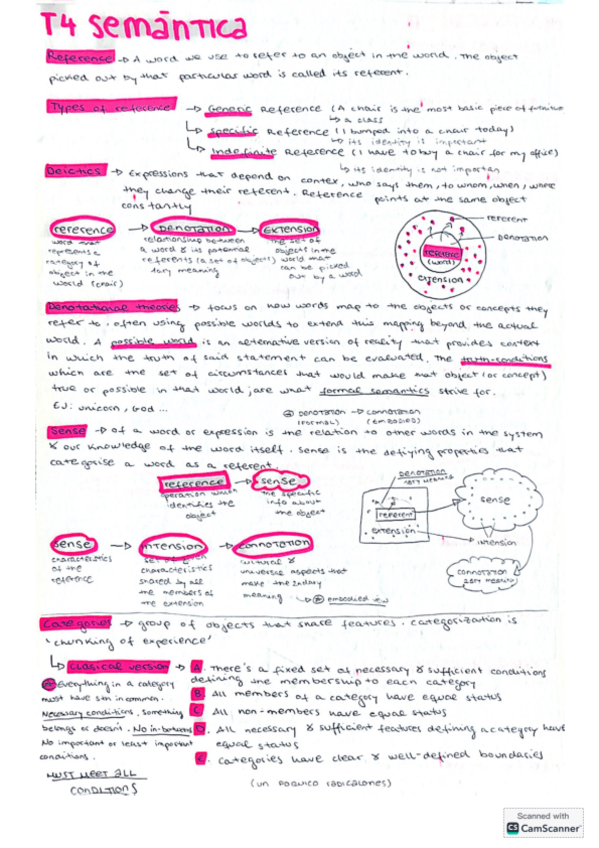 T4 Semántica
Reference → A word we use to refer to an object in the world. The object
picked out by that particular word is called its referent.
Types of reference → Generic Reference (A chair is the most basic piece of furniture
↳ a class
↳ Specific Reference (I bumped into a chair today)
↳ its identity is important
↳ Indefinite Reference (I have to buy a chair for my office)
↳ its identity is not important
Deictics → Expressions that depend on contex, who says them, to whom, when, where
they change their referent. Reference points at the same object
constantly
reference → Denotation → Extension
word that represents a category of object in the world (chair)
relationship between a word & its potential referents (a set of objects)
1ary meaning
The set of objects in the world that can be picked out by a word
referent
Denotation
reference
(word)
extension
Denotational theories → focus on how words map to the objects or concepts they
refer to, often using possible worlds to extend this mapping beyond the actual
world. A possible world is an alternative version of reality that provides context
in which the truth of said statement can be evaluated. The truth-conditions
which are the set of circumstances that would make that object (or concept)
true or possible in that world, are what formal semantics strive for.
EJ: unicorn, God ...
Denotation → connotation
(formal) (embodied)
Sense → of a word or expression is the relation to other words in the system
& our knowledge of the word itself. Sense is the defiying properties that
categorise a word as a referent.
reference → sense
operation which identifies the object
The specific info about the object
Denotation
1ary meaning
referent
extension
sense
intension
connotation
2ary meaning
sense → intension → connotation
characteristics of the reference
set of
characteristics shared by all the members of the extension
cultural & universal aspects that make the 2ndary meaning
↳ embodied
Categories → group of objects that share features. Categorization is
'chunking of experience'
↳ Clasical version → A. There's a fixed set of necessary & sufficient conditions
defining the membership to each category
B. All members of a category have equal status
C. All non-members have equal status
D. All necessary & sufficient features defining a category have
equal status
E. Categories have clear & well-defined boundaries
Everything in a category
must have sth in common.
Necessary conditions. Something
belongs or doesn't. No in-between
No important or least important
conditions.
MUST MEET ALL
CONDITIONS
(un poquico radicalones)
Scanned with
CS CamScanner